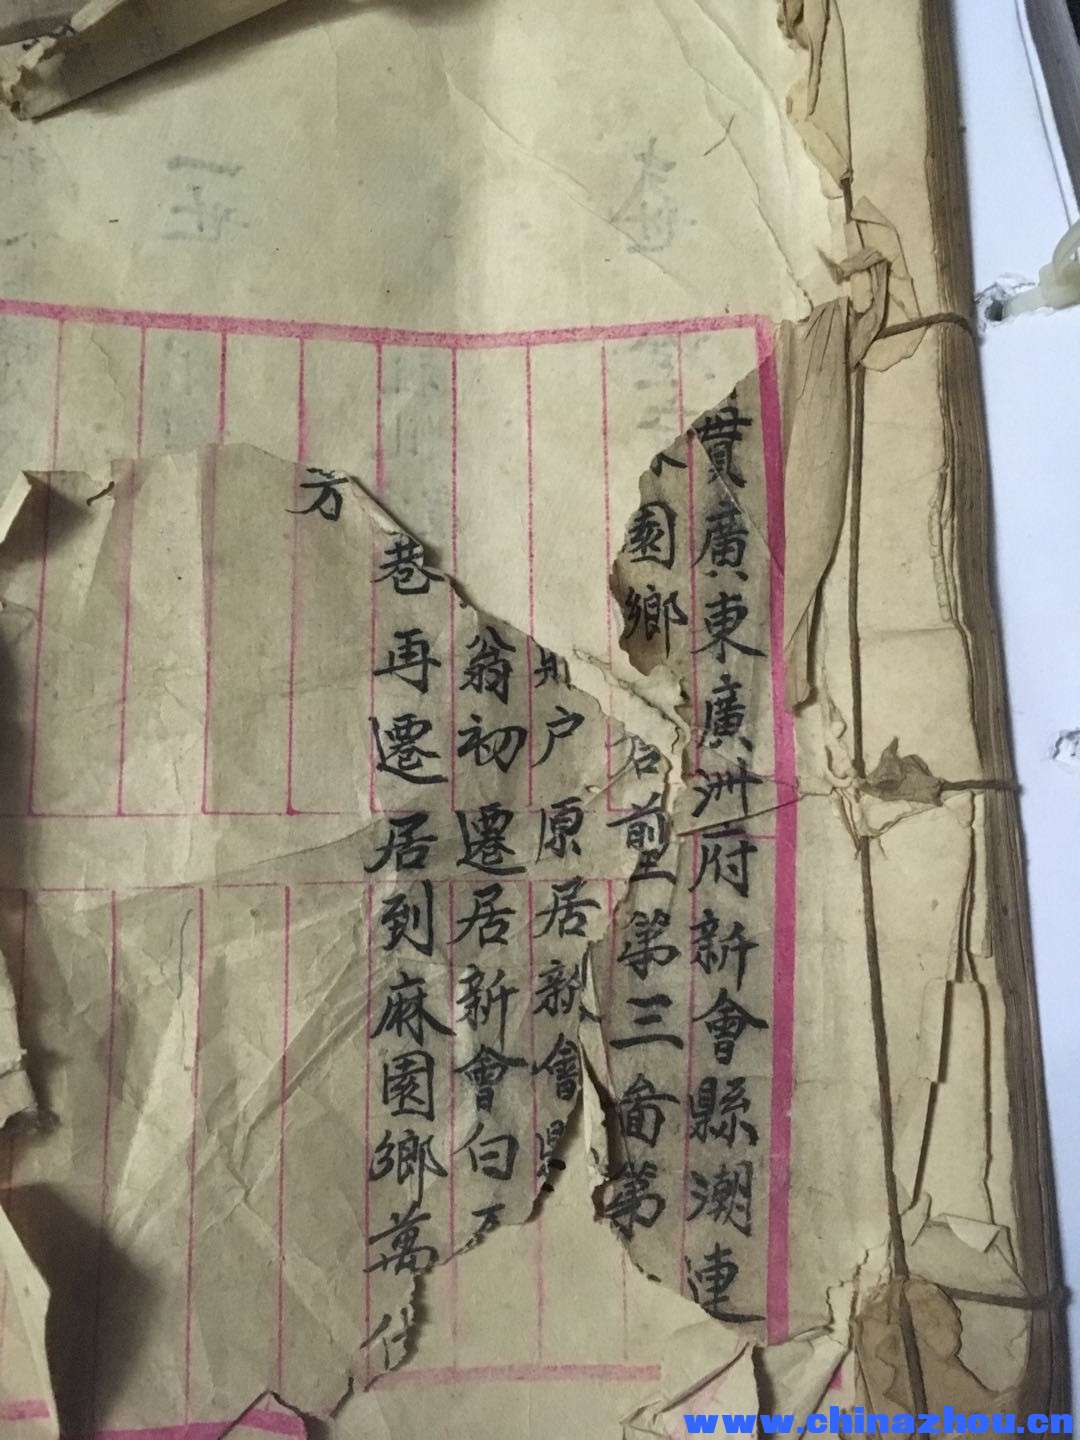 貫廣東廣洲府新會縣潮連
園鄉
前至第三啚第
户原居新會
翁初遷居新會白
巷再遷居到麻園鄉萬
一世
www.chinazhou.cn